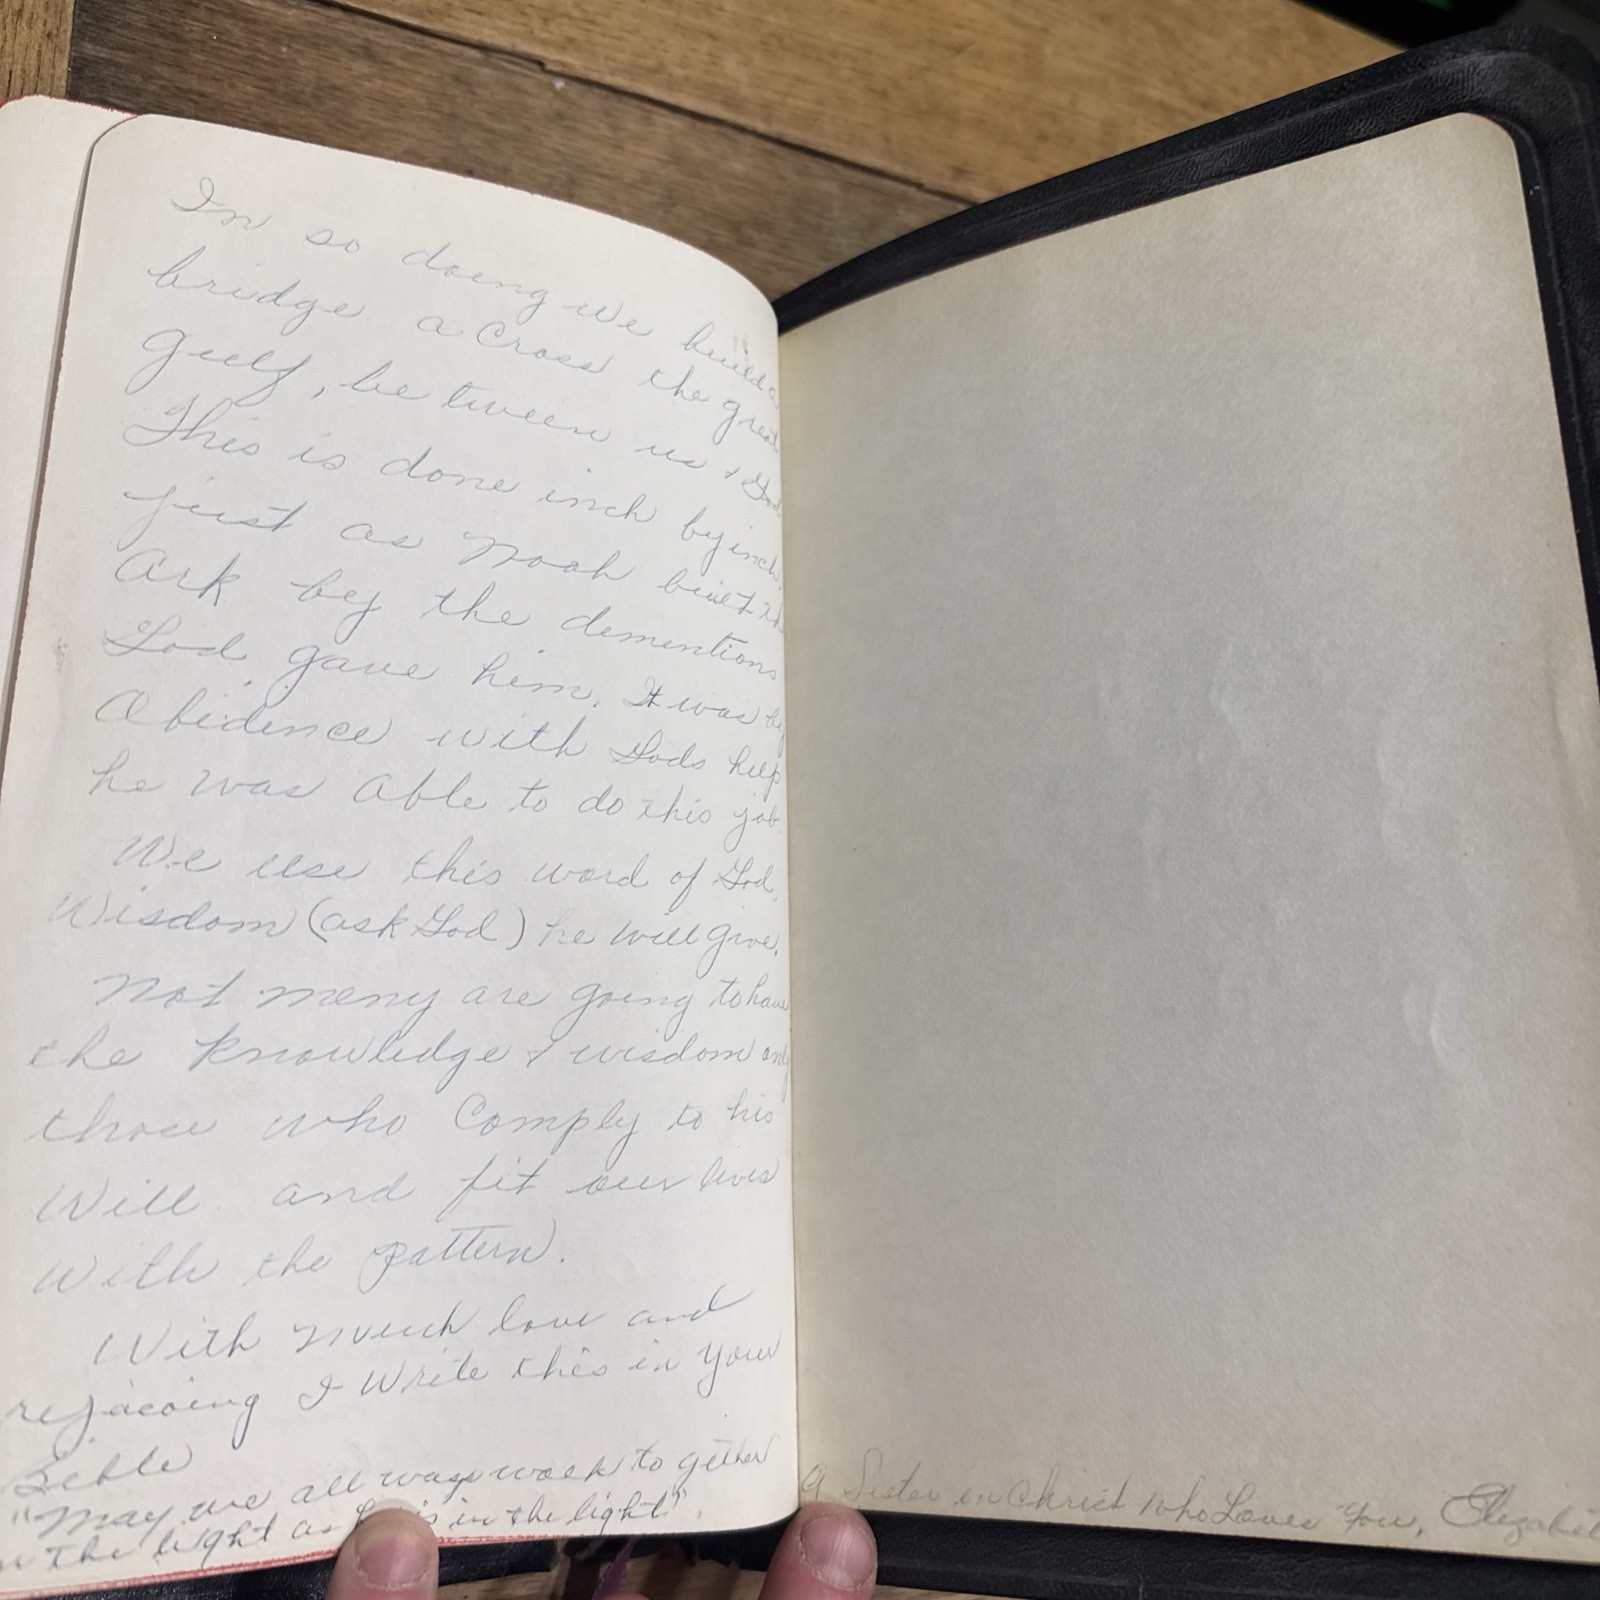 In so doing we build a
bridge a Cross the great
gulf, be tween us & God
This is done inch by inch,
just as Noah built th
Ark by the dementions
God gave him. It was by
Obidence with Gods help
he was able to do this job.
We use this word of God,
Wisdom (ask God) he will give.
Not meny are going to have
the knowledge & wisdom only
those who Comply to his
Will and fit our lives
With the pattern.
With much love and
rejacoing I Write this in your
Bible
"May we all ways walk to gether
in the light as is in the light".
A Sister in Christ who Loves You, Elizabet